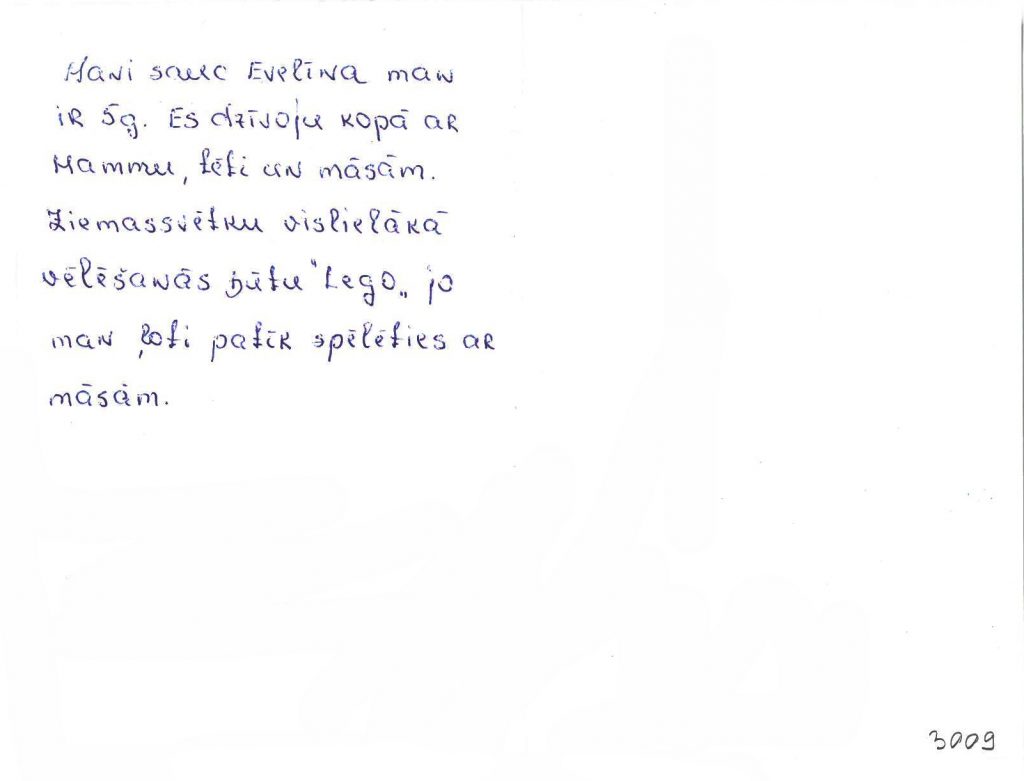 Mani sauc Evelīna man
iR 5g. Es dzīvoju kopā aR
Mammu, tēti un māsām.
Ziemassvētku vislielākā
vēlēšanās būtu "Lego„ jo
man ļoti patīk spēlēties aR
māsām.
3009